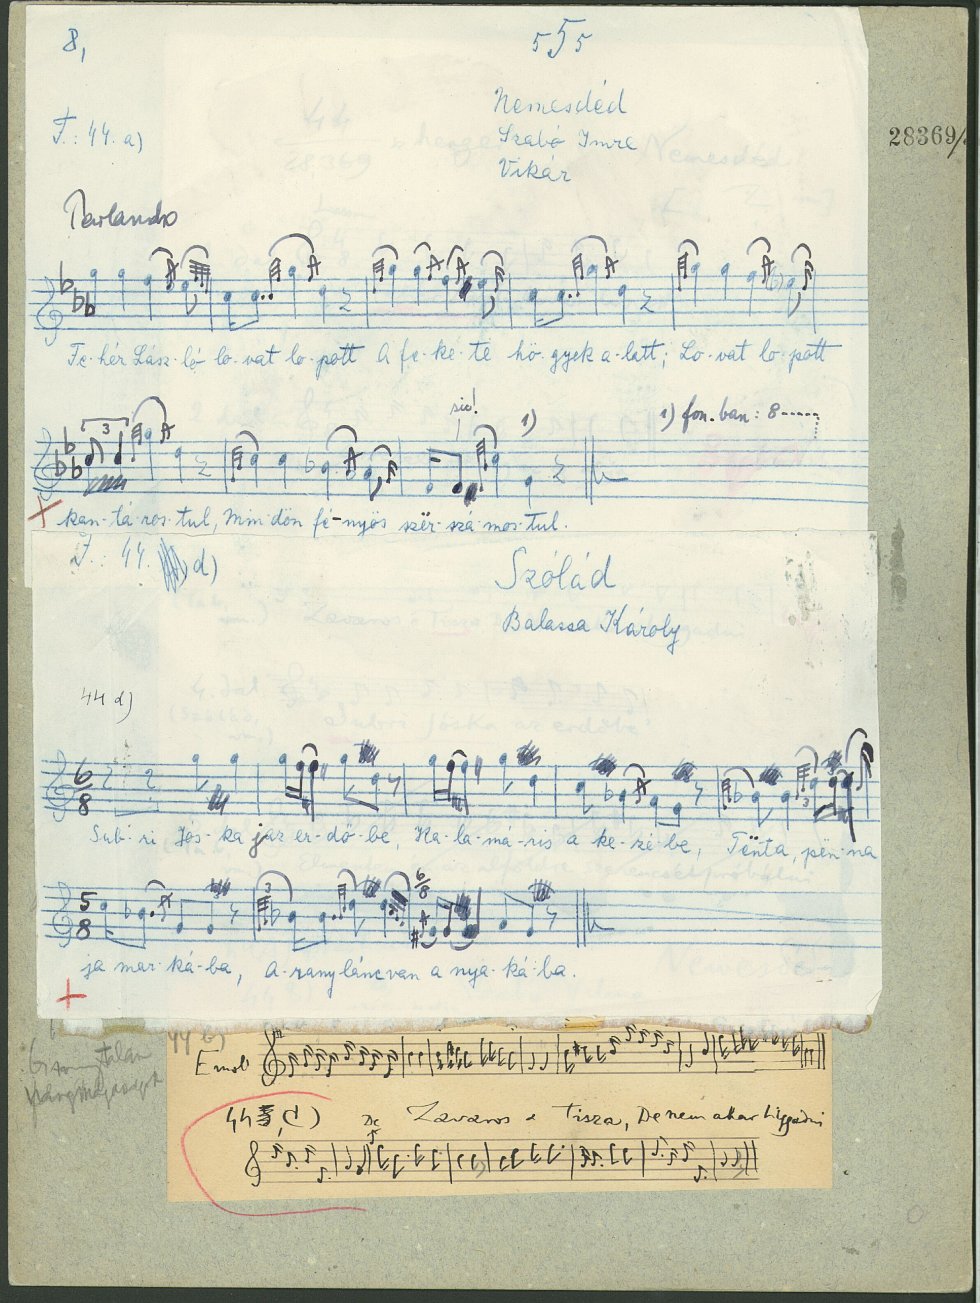 8,
555
F.: 44. a)
Nemesdéd
Szabó Imre
Vikár
28369/
Parlando
Fe-hér Lász-ló lo-vat lo-pott A fe-ke-te hö-gyek a-latt; Lo-vat lo-pott
3
sic!
1)
1) fon.ban: 8
kan-tá-ros-tul, Min-dön fé-nyös szër-szá-mos-tul.
F.: 44. d)
Szólád
Balassa Károly
44 d)
6/8
Sub-ri Jós-ka jaz er-dő-be, Ka-la-má-ris a ke-zé-be, Tënta, pën-na
5/8
3
6/8
ja mar-ká-ba, A-rany lánc van a nya-ká-ba.
44 b)
E moll
44 d)
De
Zavaros a Tisza, De nem akar higgadni